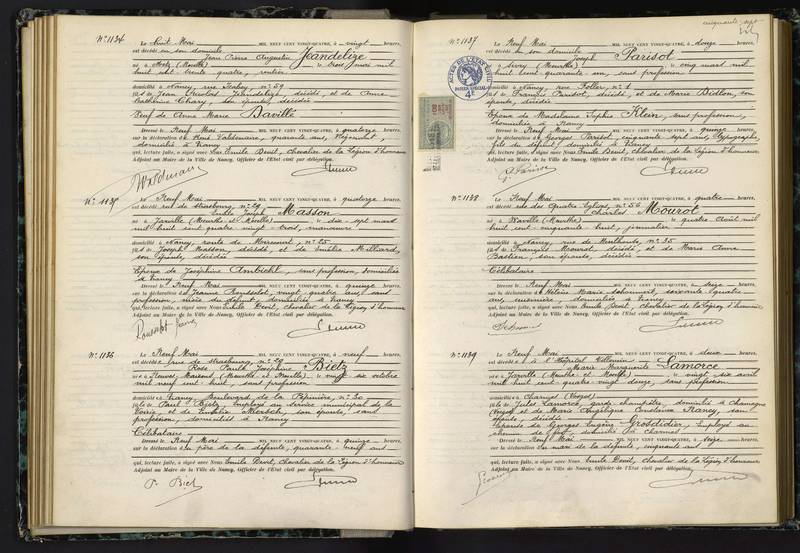 N° 1134
Le huit Mai MIL NEUF CENT VINGT-QUATRE, à vingt heures,
est décédé en son domicile
Jean Pierre Augustin Jeandelize
né à (Moselle) le trois mai mil
huit cent trente quatre, rentier
domicilié à Nancy, rue n° 59
fils de Jean Nicolas Jeandelize, décédé, et de Anne
Catherine Chary, son épouse, décédée
Veuf de Anne Marie Baville
Dressé le Neuf Mai MIL NEUF CENT VINGT-QUATRE, à quatorze heures,
sur la déclaration de René quarante ans,
domicilié à Nancy
qui, lecture faite, a signé avec Nous Emile Chevalier de la Légion d'honneur
Adjoint au Maire de la Ville de Nancy, Officier de l'Etat civil par délégation.
N° 1135
Le Neuf Mai MIL NEUF CENT VINGT-QUATRE, à quatorze heures,
est décédé rue de Strasbourg, n° 29
Emile Joseph Masson
né à Jarville (Meurthe et Moselle) le dix-sept mars
mil huit cent quatre vingt-trois, manœuvre
domicilié à Nancy, route de Mirecourt, n° 25
fils de Joseph Masson, décédé, et de Emélie
son épouse, décédée
Epoux de Joséphine Ambiehl, sans profession, domiciliée
à Nancy
Dressé le Neuf Mai MIL NEUF CENT VINGT-QUATRE, à quinze heures,
sur la déclaration de Jeanne vingt-quatre ans, sans
profession, nièce du défunt, domiciliée à Nancy
qui, lecture faite, a signé avec Nous Emile Chevalier de la Légion d'honneur
Adjoint au Maire de la Ville de Nancy, Officier de l'Etat civil par délégation.
N° 1136
Le Neuf Mai MIL NEUF CENT VINGT-QUATRE, à neuf heures,
est décédée rue de Strasbourg, n° 29
Rose Paule Joséphine Bietz
née à (Meurthe et Moselle) le vingt six octobre
mil neuf cent huit, sans profession
domiciliée à Nancy, Boulevard de la Pépinière, n° 20
fille de Paul Bietz, Employé au service municipal de la
Voirie, et de son épouse, sans
profession, domiciliés à Nancy
Célibataire
Dressé le Neuf Mai MIL NEUF CENT VINGT-QUATRE, à quinze heures,
sur la déclaration du père de la défunte, quarante neuf ans
qui, lecture faite, a signé avec Nous Emile Chevalier de la Légion d'honneur
Adjoint au Maire de la Ville de Nancy, Officier de l'Etat civil par délégation.
P. Bietz
cinquante sept
N° 1137
ACTES DE L'ÉTAT CIVIL
Le Neuf Mai MIL NEUF CENT VINGT-QUATRE, à douze heures,
est décédé en son domicile
Joseph Parisot
né à Ivry (Meurthe) le cinq mars mil
huit cent quarante un, sans profession
domicilié à Nancy, rue n° 1
fils de François Parisot, décédé, et de Marie son
épouse, décédée
Epoux de Madeleine Sophie Klein, sans profession,
domiciliée à Nancy
Dressé le Neuf Mai MIL NEUF CENT VINGT-QUATRE, à quinze heures,
sur la déclaration de Georges Parisot, cinquante sept ans, typographe,
fils du défunt, domicilié à Nancy
qui, lecture faite, a signé avec Nous Emile Chevalier de la Légion d'honneur
Adjoint au Maire de la Ville de Nancy, Officier de l'Etat civil par délégation.
N° 1138
Le Neuf Mai MIL NEUF CENT VINGT-QUATRE, à quatre heures,
est décédé rue des Quatre Eglises n° 56
Charles Mourot
né à (Meurthe) le quatre août mil
huit cent cinquante huit, jardinier
domicilié à Nancy, rue de Mulhouse, n° 35
fils de François Mourot, décédé, et de Marie Anne
Bastien, son épouse, décédée
Célibataire
Dressé le Neuf Mai MIL NEUF CENT VINGT-QUATRE, à seize heures,
sur la déclaration de Hélène Marie soixante quatre
ans, domiciliée à Nancy
qui, lecture faite, a signé avec Nous Emile Chevalier de la Légion d'honneur
Adjoint au Maire de la Ville de Nancy, Officier de l'Etat civil par délégation.
N° 1139
Le Neuf Mai MIL NEUF CENT VINGT-QUATRE, à deux heures,
est décédée à l'Hôpital Villemin
Marie Marguerite Lamorce
née à Jarville (Meurthe et Moselle) le vingt six avril
mil huit cent quatre vingt douze, sans profession
domiciliée à Charmes (Vosges)
fille de Jules Lamorce, garde champêtre, domicilié à Chamagne
(Vosges) et de Marie Angélique Constance Nancy, son
épouse, décédée
Epouse de Georges Eugène Grosdidier, Employé au
chemin de fer, domicilié à Charmes
Dressé le Neuf Mai MIL NEUF CENT VINGT-QUATRE, à seize heures,
sur la déclaration du mari de la défunte, cinquante ans
qui, lecture faite, a signé avec Nous Emile Chevalier de la Légion d'honneur
Adjoint au Maire de la Ville de Nancy, Officier de l'Etat civil par délégation.